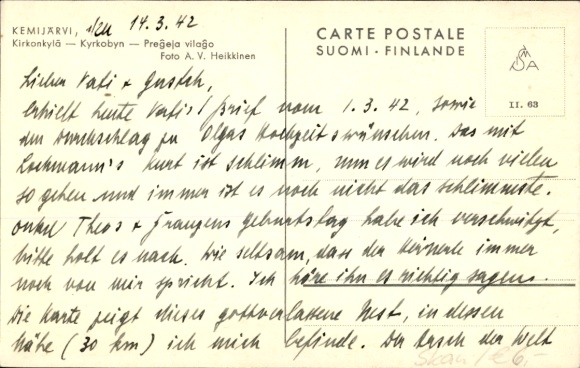 KEMIJÄRVI, 14.3.42
Kirkonkylä — Kyrkobyn — Preĝeja vilaĝo
Foto A. V. Heikkinen
CARTE POSTALE
SUOMI · FINLANDE
II. 63
Lieber Vati + Gustch,
erhielt heute Vatis Brief vom 1.3.42, sowie
den Durchschlag zu Olgas Hochzeitswünschen. Das mit
Lochmann's Kurt ist schlimm, nun es wird noch vielen
so gehen und immer ist es noch nicht das schlimmste.
Onkel Theos + Franzens Geburtstag habe ich verschwitzt,
bitte holt es nach. Wie seltsam, dass der immer
noch von mir spricht. Ich höre ihn es richtig sagen.
Die Karte zeigt dieses gottverlassene Nest, in dessen
Nähe (30 km) ich mich befinde. Der Arsch der Welt